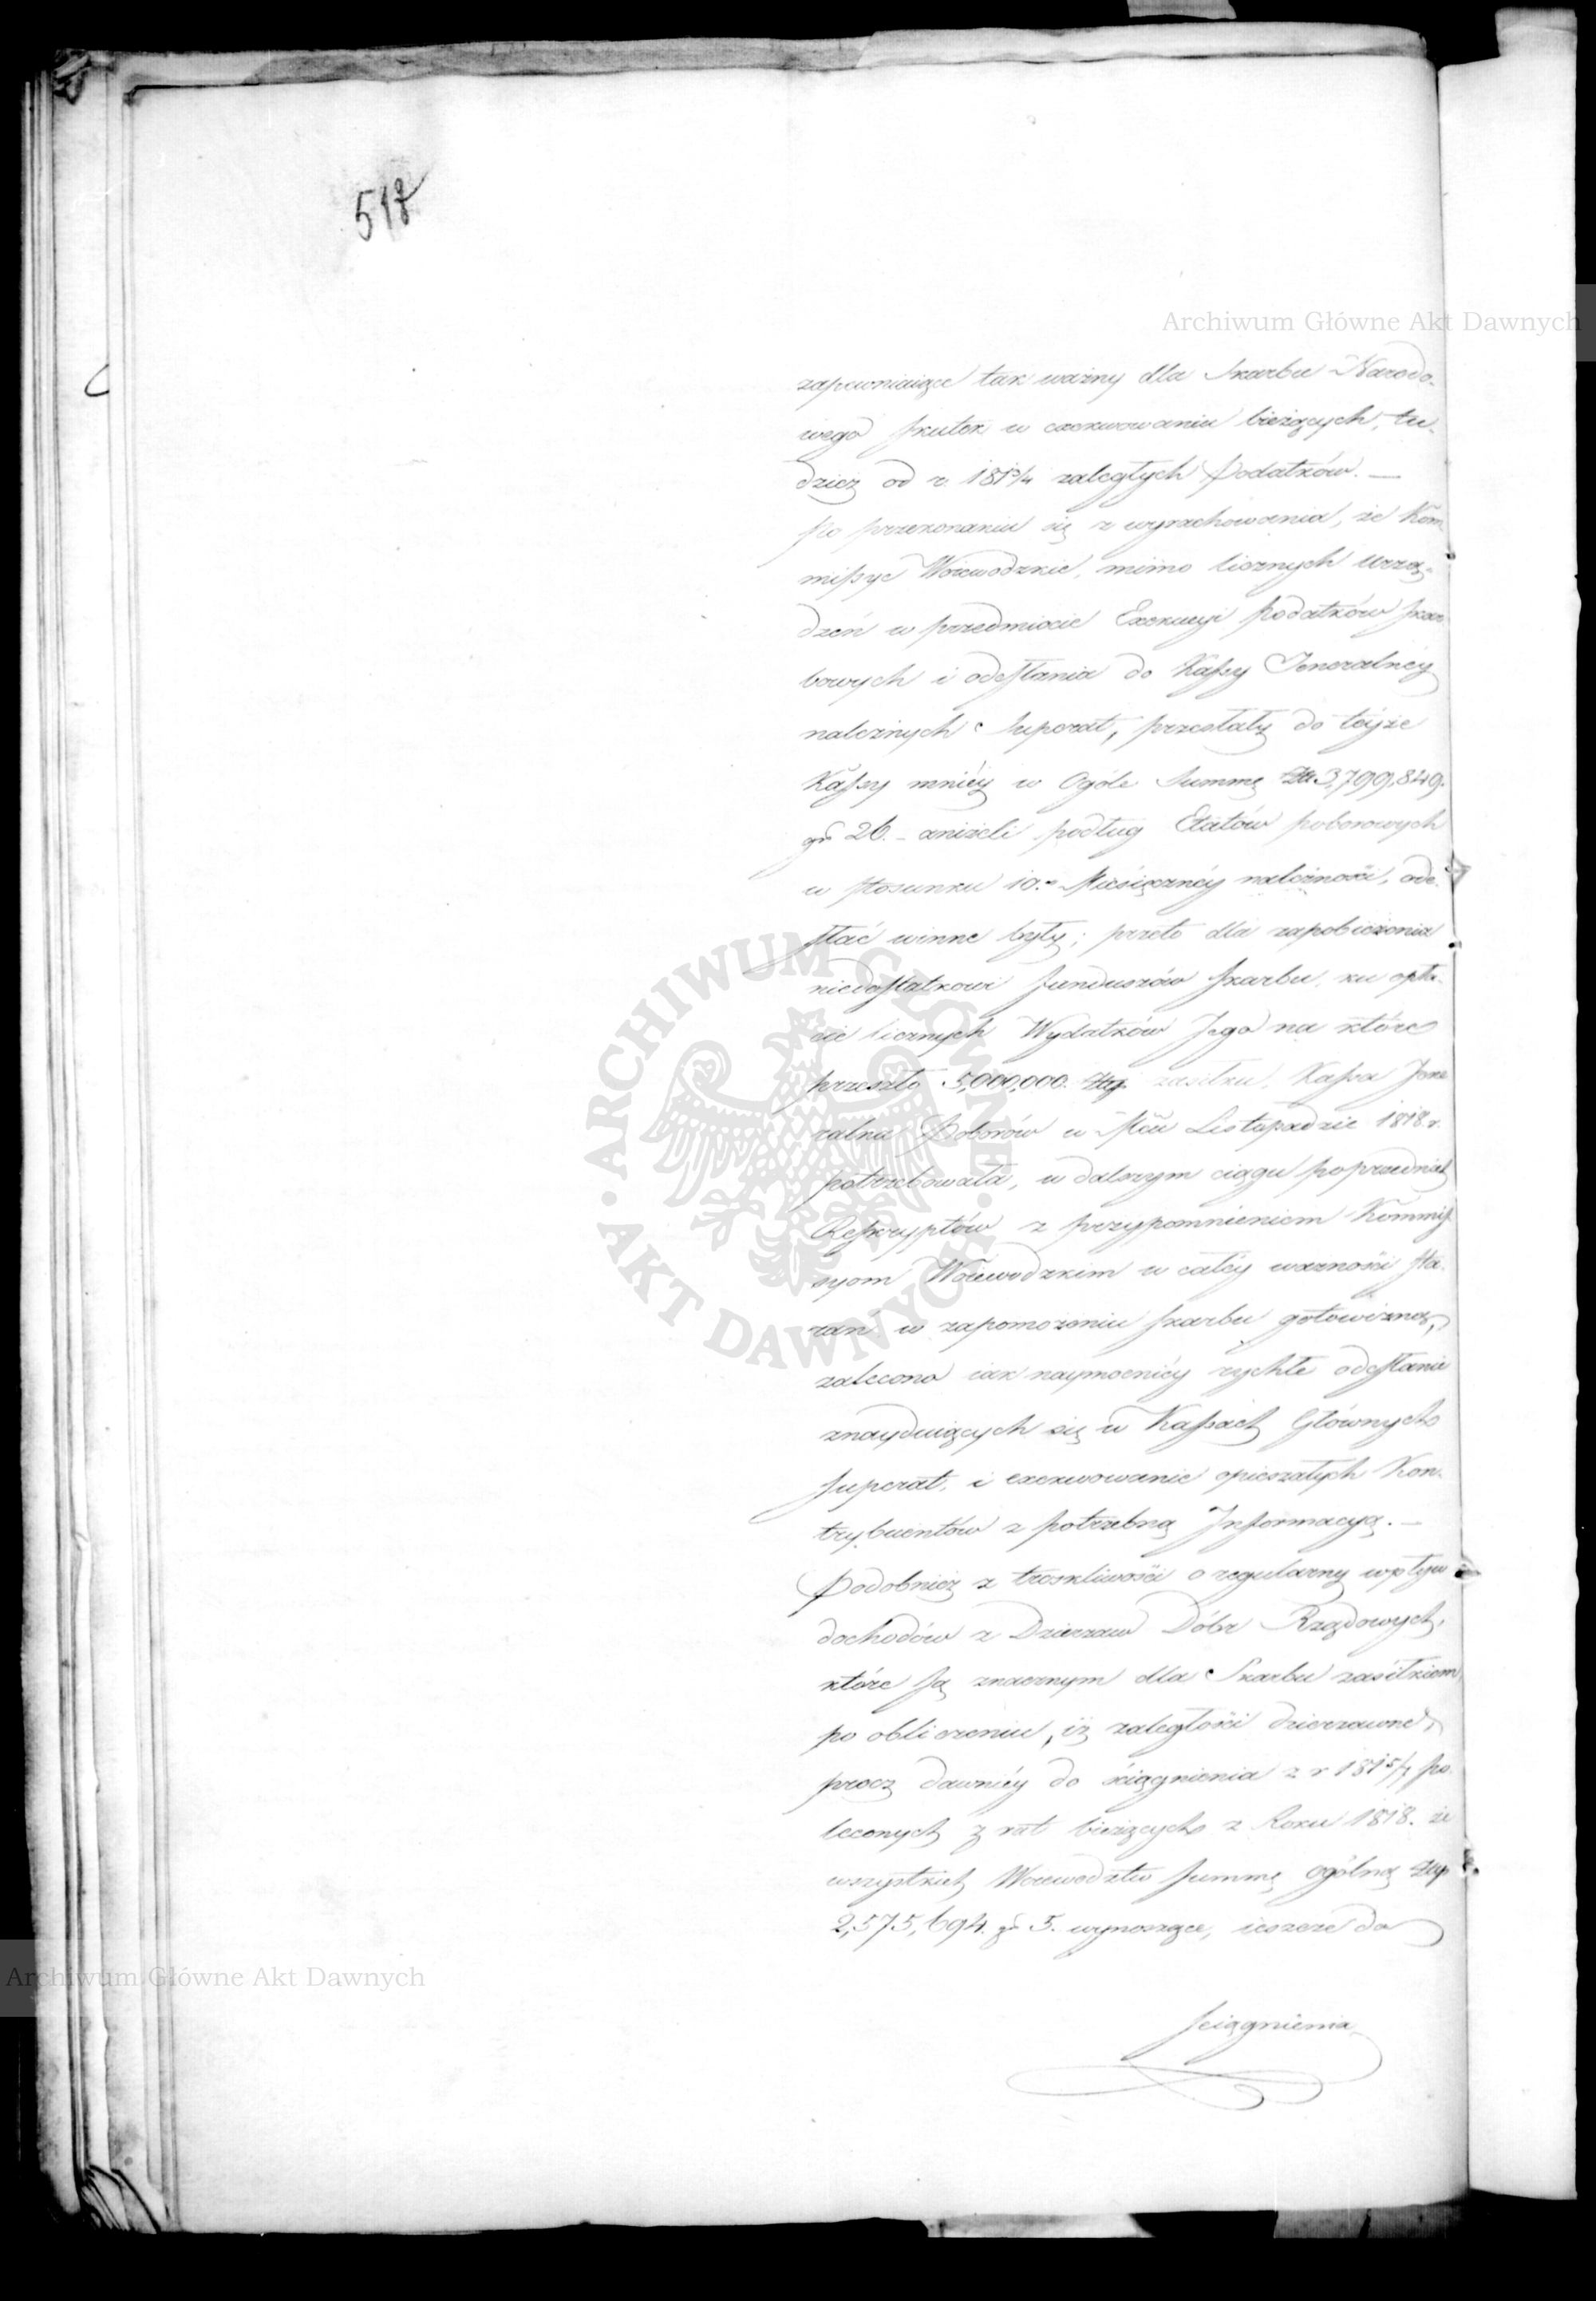 517
Archiwum Główne Akt Dawnych
zapewniaiące tak ważny dla Skarbu Narodo-
wego skutek w exekwowaniu bieżących, tu-
dzież od r. 1813/4 zaległych Podatków. —
Po przekonaniu się z wyrachowania, że Kom-
missye Woiewodzkie, mimo licznych Urzą-
dzeń w przedmiocie Exekucyi podatków skar-
bowych i odesłania do Kassy Jeneralnéy
należnych Superat, przesłały do téyże
Kassy mniéy w Ogóle Summę Złt. 3,799,849.
gr 26. - aniżeli podług Etatów poborowych
w stosunku 10. Miesięcznéy należności, ode-
słać winne były; przeto dla zapobieżenia
niedostatkowi funduszów Skarbu, ku opła-
cie licznych Wydatków Jego na które
przeszło 5,000,000. Złtp. zasiłku, Kassa Jene-
ralna Poborów w Mcu Listopadzie 1818 r.
potrzebowała, w dalszym ciągu poprzednich
Reskryptów z przypomnieniem Kommis-
syom Woiewodzkim w całéy ważności sta-
rań w zapomożeniu Skarbu gotowizną,
zalecono iak naymocniéy rychłe odesłanie
znayduiących się w Kassach Głównych
Superat, i exekwowanie opieszałych Kon-
trybuentów z potrzebną Informacyą. —
Podobnież z troskliwości o regularny wpływ
dochodów z Dzierżaw Dóbr Rządowych,
które są znacznym dla Skarbu zasiłkiem,
po obliczeniu, iż zaległości dzierżawne,
procz dawniéy do ściągnienia z r 1815/7 po-
leconych z rat bieżących z Roku 1818. ze
wszystkich Woiewodztw Summę ogólną Złtp
2,575,694. gr 5. wynoszące, ieszcze do
ściągnienia
ARCHIWUM GŁÓWNE · AKT DAWNYCH ·
Archiwum Główne Akt Dawnych